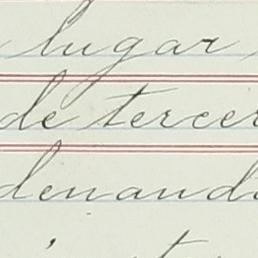 lugar
de tercer
denand